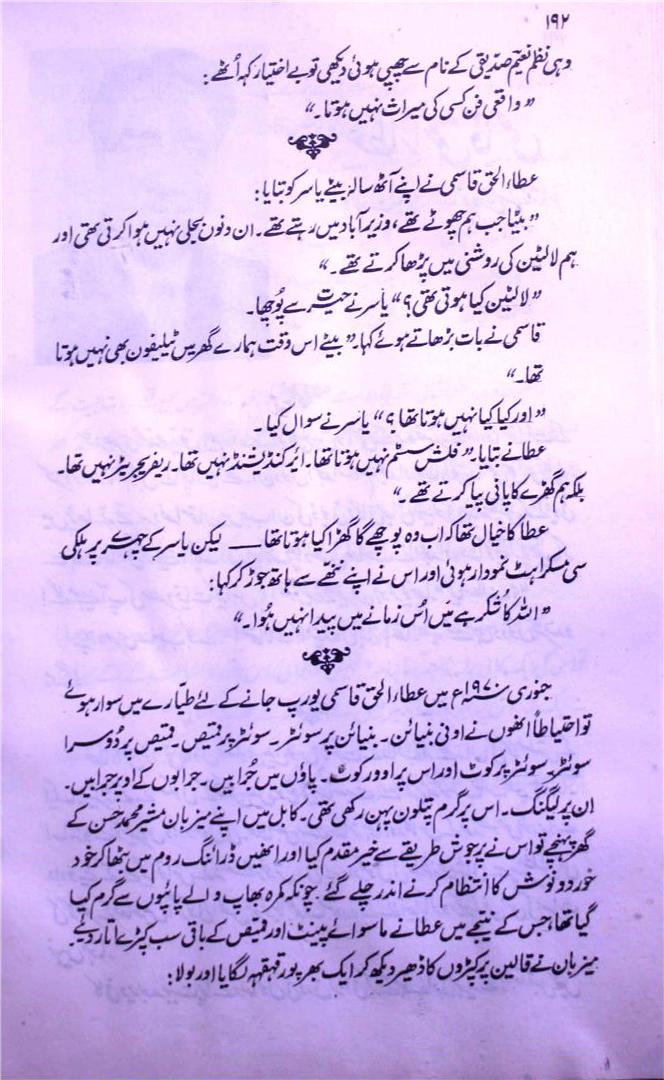 ۱۹۲
وہی نظم نعیم صدیقی کے نام سے چھپی ہوئی دیکھی تو بے اختیار کہہ اُٹھے :
"واقعی فن کسی کی میراث نہیں ہوتا۔"
عطاء الحق قاسمی نے اپنے آٹھ سالہ بیٹے یاسر کو بتایا :
"بیٹا جب ہم چھوٹے تھے، وزیر آباد میں رہتے تھے۔ ان دنوں بجلی نہیں ہوا کرتی تھی اور
ہم لالٹین کی روشنی میں پڑھا کرتے تھے۔"
"لالٹین کیا ہوتی تھی؟" یاسر نے حیرت سے پُوچھا۔
قاسمی نے بات بڑھاتے ہوئے کہا۔ "بیٹے اس وقت ہمارے گھر میں ٹیلیفون بھی نہیں ہوتا
تھا۔"
"اور کیا کیا نہیں ہوتا تھا؟" یاسر نے سوال کیا۔
عطا نے بتایا۔ "فلش سسٹم نہیں ہوتا تھا۔ ایئر کنڈیشنڈ نہیں تھا۔ ریفریجریٹر نہیں تھا۔
بلکہ ہم گھڑے کا پانی پیا کرتے تھے۔"
عطا کا خیال تھا کہ اب وہ پوچھے گا گھڑا کیا ہوتا تھا ــــ لیکن یاسر کے چہرے پر ہلکی
سی مسکراہٹ نمودار ہوئی اور اس نے اپنے ننھے سے ہاتھ جوڑ کر کہا :
"اللہ کا شکر ہے میں اُس زمانے میں پیدا نہیں ہُوا۔"
جنوری سنہ ۱۹۷۰ء میں عطاء الحق قاسمی یورپ جانے کے لئے طیارے میں سوار ہوئے
تو احتیاطاً انھوں نے اونی بنیائن۔ بنیائن پر سوئٹر۔ سوئٹر پر قمیص۔ قمیص پر دُوسرا
سوئٹر۔ سوئٹر پر کوٹ اور اس پر اوور کوٹ۔ پاؤں میں جُرابیں۔ جرابوں کے اوپر جرابیں۔
اِن پر لیگنگ۔ اس پر گرم پتلون پہن رکھی تھی۔ کابل میں اپنے میزبان مشیر محمد حسن کے
گھر پہنچے تو اس نے پرجوش طریقے سے خیر مقدم کیا اور انھیں ڈرائنگ روم میں بٹھا کر خود
خورد و نوش کا انتظام کرنے اندر چلے گئے۔ چونکہ کمرہ بھاپ والے پائپوں سے گرم کیا
گیا تھا، جس کے نتیجے میں عطا نے ماسوائے پینٹ اور قمیص کے باقی سب کپڑے اتار دیے
میزبان نے قالین پر کپڑوں کا ڈھیر دیکھ کر ایک بھرپور قہقہہ لگایا اور بولا :